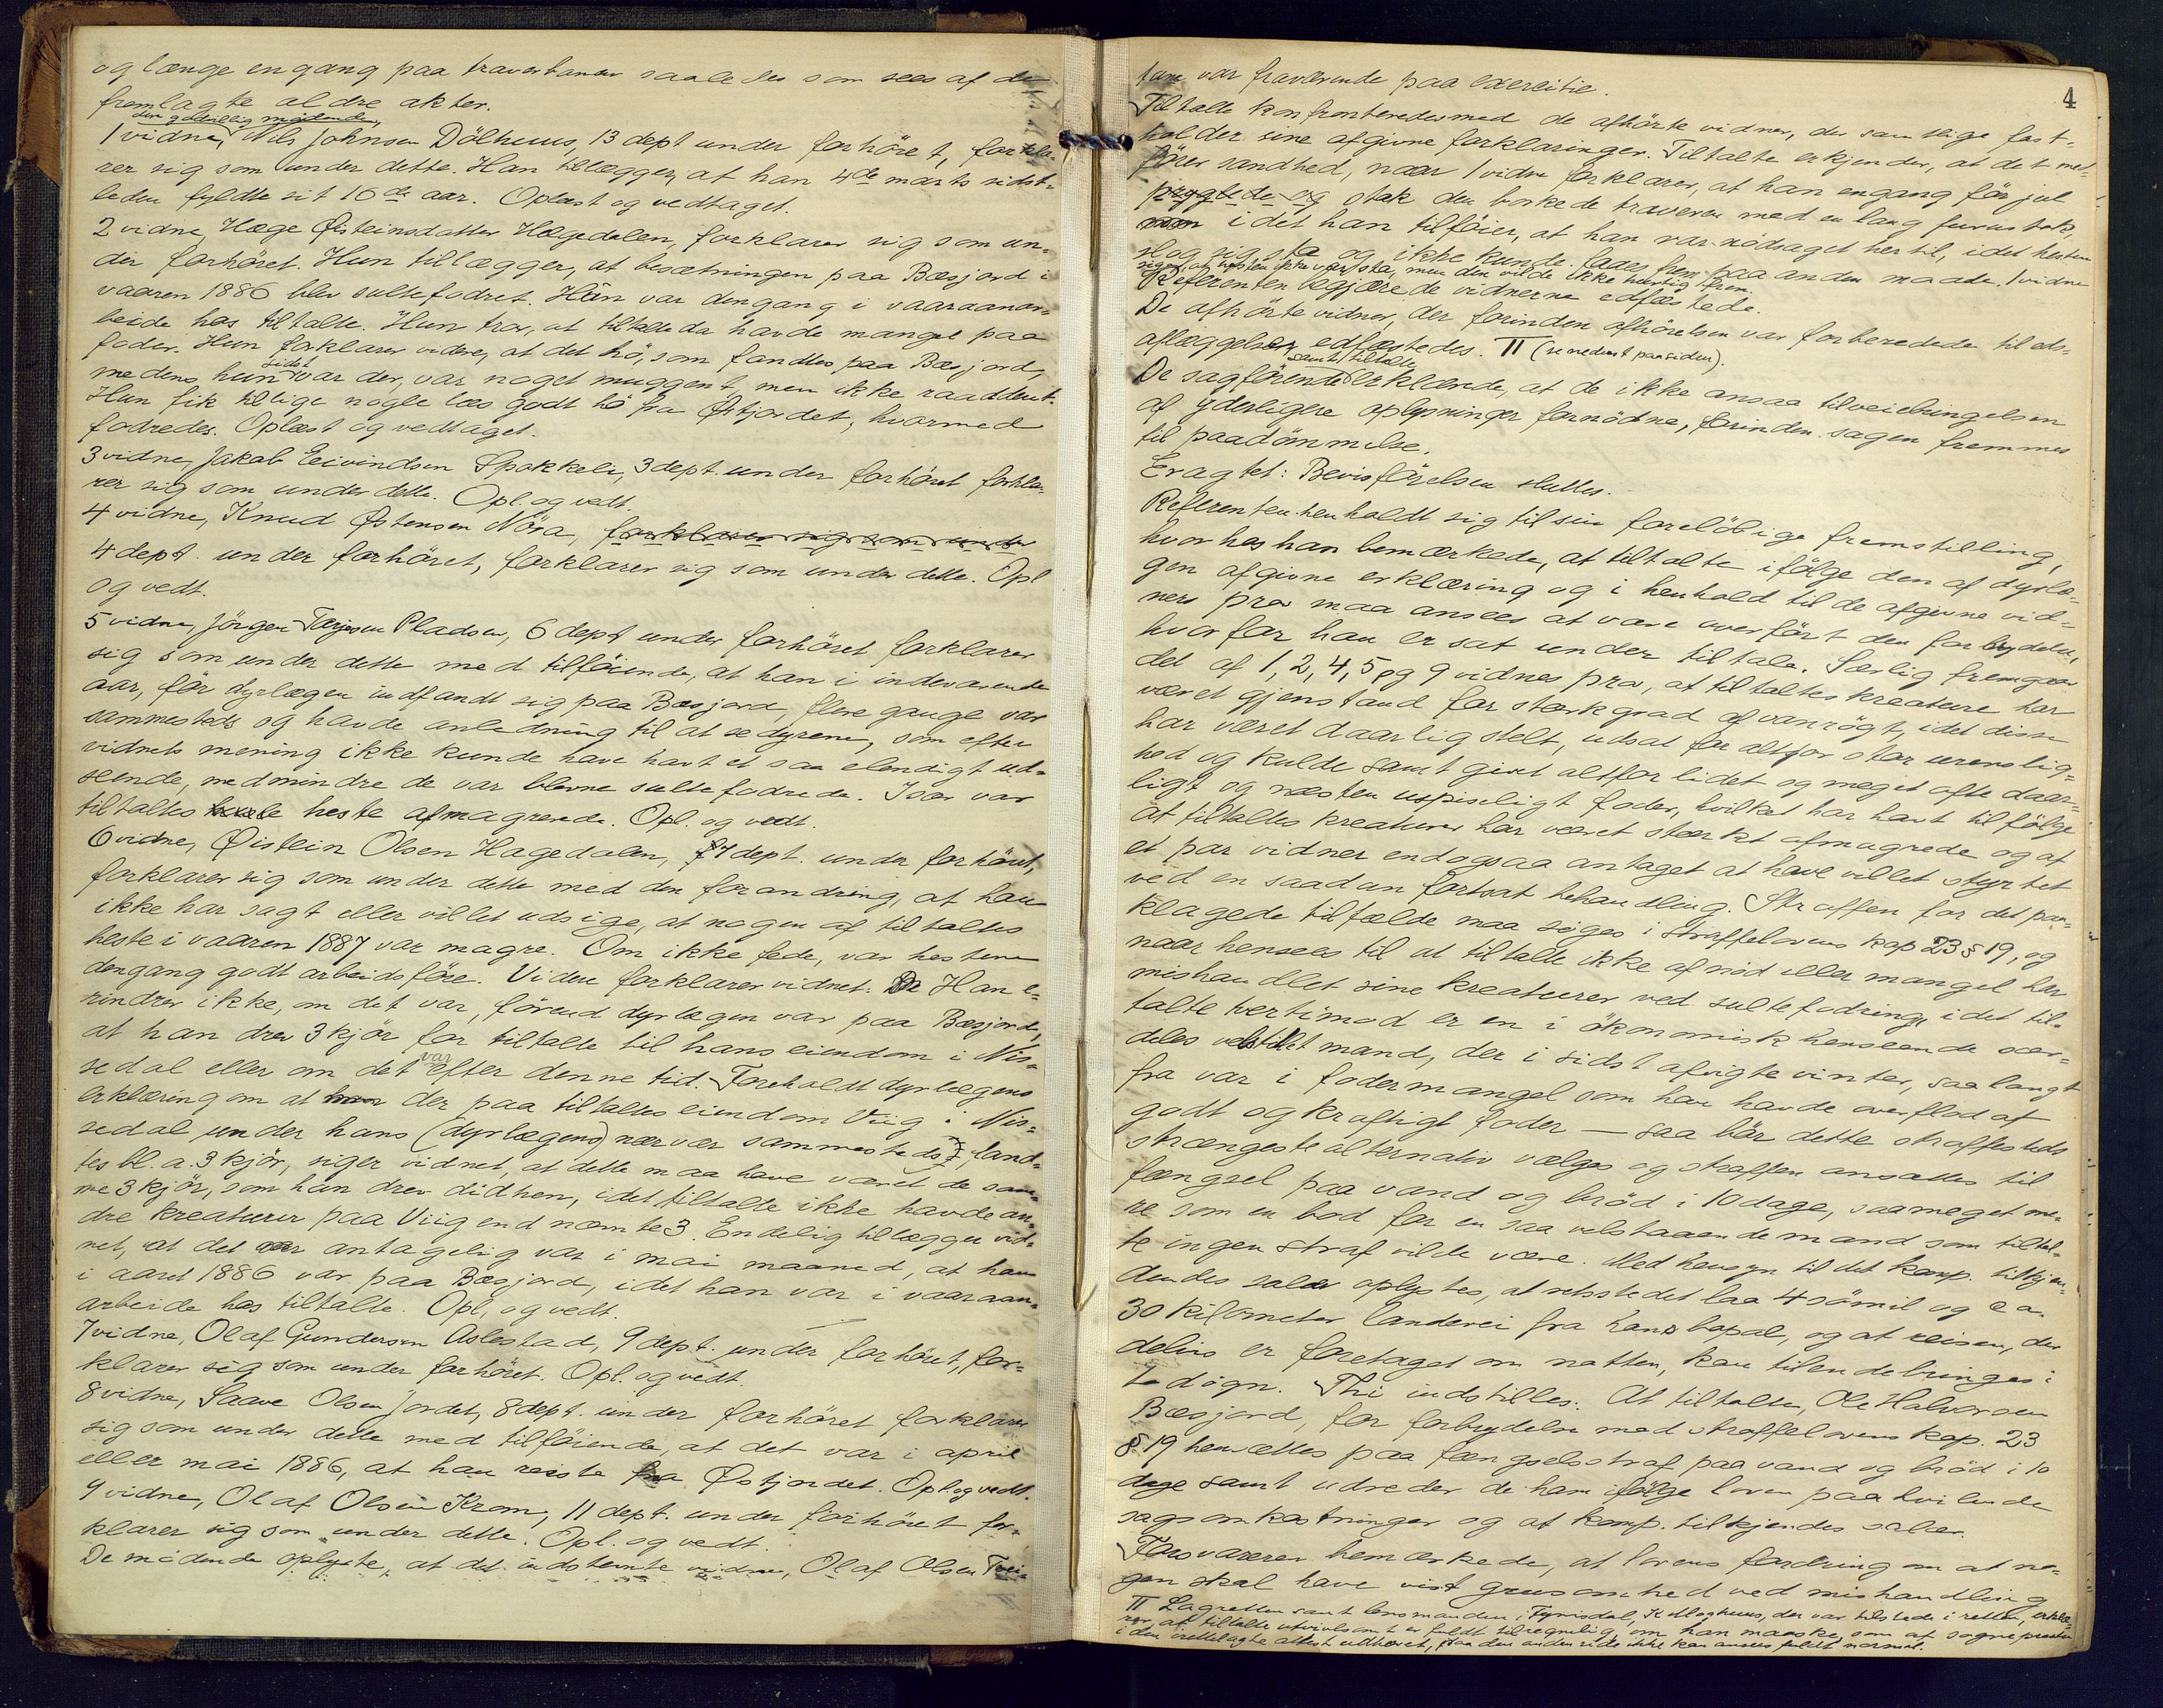 og længe en gang paa traverbanen saaledes som sees af de
fremlagte ældre akter.
der godvillig mødende,
1 vidne, Nils Johnsen Dölhuus, 13 dept under forhöret, forkla-
rer sig som under dette. Han tillægger, at han 4de marts sidst-
leden fyldte sit 16de aar. Oplæst og vedtaget.
2 vidne, Hæge Østeinsdatter Hægedalen, forklarer sig som un-
der forhöret. Hun tillægger, at besætningen paa Bæsjord i
vaaren 1886 blev sultefodret. Hun var dengang i vaaraanar-
beide hos tiltalte. Hun tror, at tiltalte da havde mangel paa
foder. Hun forklarer videre, at det hö, som fandtes paa Bæsjord,
medens hun sidst var der, var noget muggent, men ikke raaddent.
Hun fik tillige nogle læs godt hö fra Østjordet, hvormed
fodredes. Oplæst og vedtaget.
3 vidne, Jakob Eivindsen Spokkeli, 3 dept. under forhöret forkla-
rer sig som under dette. Opl. og vedt.
4 vidne, Knud Østensen Nöra, forklarer sig som under
4 dept. under forhöret, forklarer sig som under dette. Opl
og vedt.
5 vidne, Jörgen Tarjesen Pladsen, 6 dept under forhöret forklarer
sig som under dette med tilföiende, at han i indeværende
aar, för dyrlægen indfandt sig paa Bæsjord, flere gange var
sammesteds og havde anledning til at se dyrene, som efter
vidnets mening ikke kunde have havt et saa elendigt ud-
seende, medmindre de var blevne sultefodrede. Især var
tiltaltes heste afmagrede. Opl. og vedt.
6 vidne, Øistein Olsen Hagedalen, 7 dept. under forhöret,
forklarer sig som under dette med den forandring, at han
ikke har sagt eller villet udsige, at nogen af tiltaltes
heste i vaaren 1887 var magre. Om ikke fede, var hestene
dengang godt arbeidsföre. Videre forklarer vidnet: Han e-
rindrer ikke, om det var, förend dyrlægen var paa Bæsjord,
at han drev 3 kjör for tiltalte til hans eiendom i Nis-
sedal eller om det var efter denne tid. Foreholdt dyrlægens
erklæring om at der paa tiltaltes eiendom Viig i Nis-
sedal under hans (dyrlægens) nærvær sammesteds, fand-
tes bl. a. 3 kjör, siger vidnet, at dette maa have været de sam-
me 3 kjör, som han drev didhen, idet tiltalte ikke havde an-
dre kreaturer paa Viig end nævnte 3. Endelig tillægger vid-
net, at det antagelig var i mai maaned, at han
i aaret 1886 var paa Bæsjord, idet han var i vaaraan-
arbeide hos tiltalte. Opl, og vedt.
7 vidne, Olaf Gundersen Aslestad, 9 dept. under forhöret, for-
klarer sig som under forhöret. Opl. og vedt.
8 vidne, Saave Olsen Jordet, 8 dept. under forhöret forklarer
sig som under dette med tilföiende, at det var i april
eller mai 1886, at han reiste fra Østjordet. Opl og vedt.
9 vidne, Olaf Olsen Krom, 11 dept. under forhöret for-
klarer sig som under dette. Opl. og vedt.
De mödende oplyste, at det indstevnte vidne, Olaf Olsen Tvei-
4
tane var fraværende paa exercitie.
Tiltalte konfronteredes med de afhörte vidner, der samtlige fast-
holder sine afgivne forklaringer. Tiltalte erkjender, at det med-
förer sandhed, naar 1 vidne forklarer, at han engang för jul
prygtede og stak den borkede traveren med en lang furustok,
idet han tilföier, at han var nödsaget hertil, idet hesten
slog sig sta og ikke kunde faaes frem paa anden maade. 1 vidne
siger, at hesten ikke var sta, men den vilde ikke hurtig frem.
Referenten begjærede vidnerne edfæstede.
De afhörte vidner, der forinden afhörelsen var forberedede til eds-
aflæggelsen edfæstedes. TT (se nederst paa siden).
De sagförende samt tiltalte erklærede, at de ikke ansaa tilveiebringelsen
af yderligere oplysninger fornödne, forinden sagen fremmes
til paadömmelse.
Eragtet: Bevisförelsen sluttes.
Referenten henholdt sig til sin foreløbige fremstilling,
hvorhos han bemærkede, at tiltalte ifölge den af dyrlæ-
gen afgivne erklæring og i henhold til de afgivne vid-
ners prov maa ansees at være overfört den forbrydelse,
hvorfor han er sat under tiltale. Særlig fremgaar
det af 1, 2, 4, 5 og 9 vidnes prov, at tiltaltes kreature har
været gjenstand for stærk grad af vanrögt, idet disse
har været daarlig stelt, udsat for altfor stor urenslig-
hed og kulde samt givet altfor lidet og meget ofte daar-
ligt og næsten uspiseligt foder, hvilket har havt til fölge
at tiltaltes kreaturer har været stærkt afmagrede og af
et par vidner endogsaa antaget at have villet styrtet
ved en saadan fortsat behandling. Straffen for det paa-
klagede tilfælde maa söges i straffelovens kap 23 § 19, og
naar hensees til at tiltalte ikke af nöd eller mangel har
mishandlet sine kreaturer ved sultefodring, idet til-
talte tvertimod er en i ökonomisk henseende sær-
deles velstillet mand, der i sidst afvigte vinter, saa langt
fra var i fodermangel som han havde overflod af
godt og kraftigt foder — saa bör dette straffesteds
strængeste alternativ vælges og straffen ansættes til
fængsel paa vand og bröd i 10 dage, saameget me-
re som en bod for en saa velstaaende mand som tiltal-
te ingen straf vilde være. Med hensyn til det komp. tilkjen-
dendes salær oplystes, at retsstedet laa 4 sömil og ca.
30 kilometer landevei fra hans bopæl, og at reisen, der
delvis er foretaget om natten, kan tilendebringes i
1 dögn. Thi indstilles: At tiltalte, Ole Halvorsen
Bæsjord, for forbrydelse mod straffelovens kap. 23
§ 19 hensættes paa fængselsstraf paa vand og bröd i 10
dage samt udreder de ham ifölge loven paahvilende
sagsomkostninger og at komp. tilkjendes salær.
Forsvareren bemærkede, at lovens fordring om at no-
gen skal have vist grusomhed ved mishandling
TT Lagretten samt lensmanden i Fyrisdal, K Moghuus, der var tilstede i retten, erklæ-
rer, at tiltalte utvivlsomt er fuldt tilregnelig, om han maaske, som af sognepresten
i den irettelagte attest udtheret, paa den anden side ikke kan ansees fuldt normal.